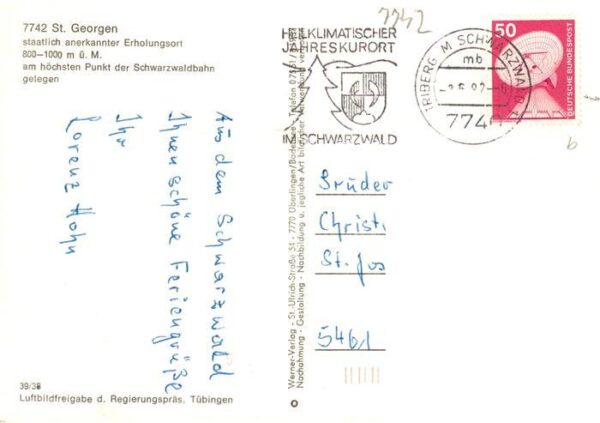 7742 St. Georgen
staatlich anerkannter Erholungsort
800–1000 m ü. M.
am höchsten Punkt der Schwarzwaldbahn
gelegen
Aus dem Schwarzwald
Ihnen schöne Feriengrüße
Ihr
Lorenz Hohn
39/38
Luftbildfreigabe d. Regierungspräs. Tübingen
Werner-Verlag - St.-Ulrich-Straße 54 - 7770 Überlingen/Bodensee - Telefon
Nachahmung - Gestaltung - Nachbildung u. jegliche Art bildlicher
7742
HEILKLIMATISCHER
JAHRESKURORT
IM SCHWARZWALD
TRIBERG M SCHWARZWALD
mb
7740
50
DEUTSCHE BUNDESPOST
Brüder
Christi
St. Jos
5461